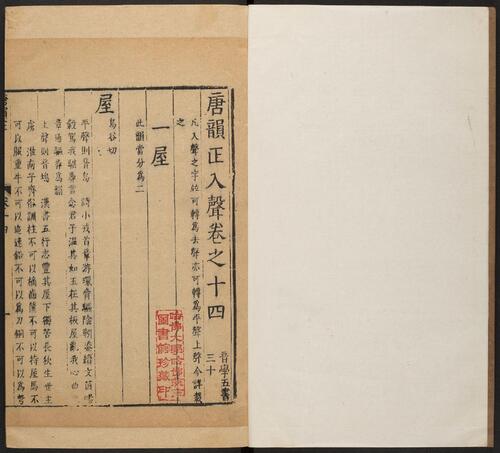 唐韻正入聲卷之十四
音學五書
三十
凡入聲之字竝可轉爲去聲亦可轉爲平聲上聲今詳載
之
一屋
此韻當分爲二
烏谷切
屋
平聲則音烏 詩小戎首章游環脅驅陰靷鋈續文茵暢
轂駕我騏馵言念君子溫其如玉在其板屋亂我心曲
驅馵爲韻
上聲則音塢 漢書五行志豐其屋下獨苦長狄生世主
虜 淮南子齊俗訓柱不可以摘齒筐不可以持屋馬不
可以服重牛不可以追速鉛不可以爲刀銅不可以爲弩
哈佛大學哈佛燕京
圖書館珍藏印